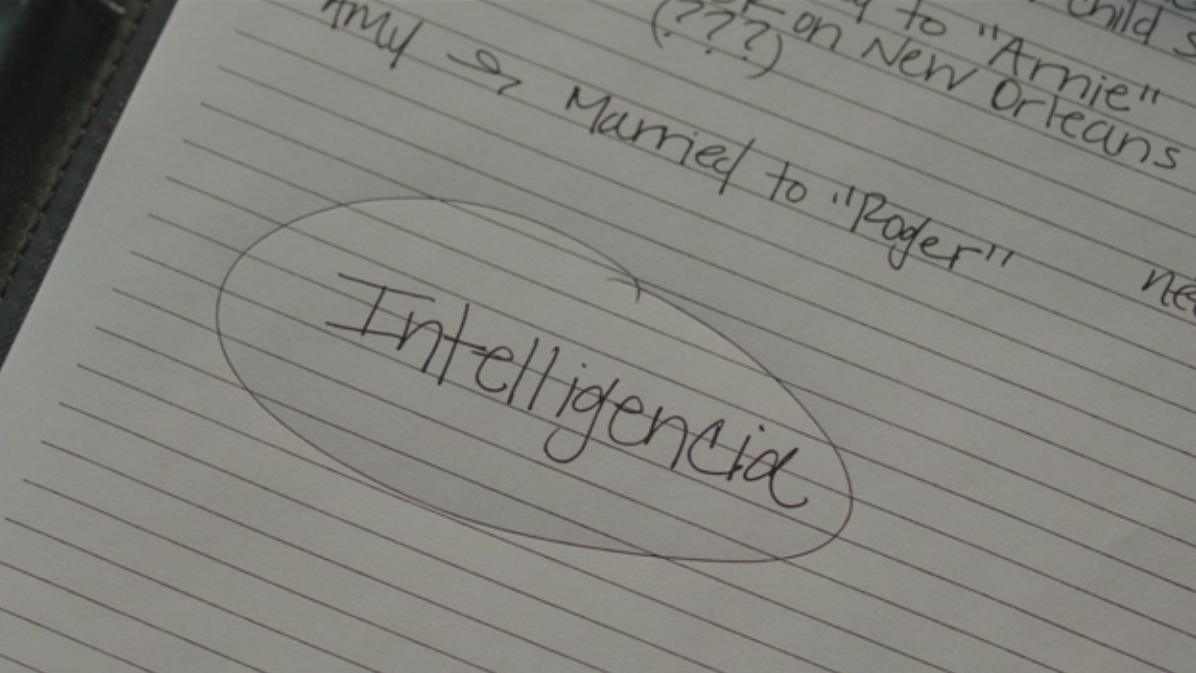 child
to "Arnie"
(???) on New Orleans
Amy → Married to "Roger"
Intelligencia